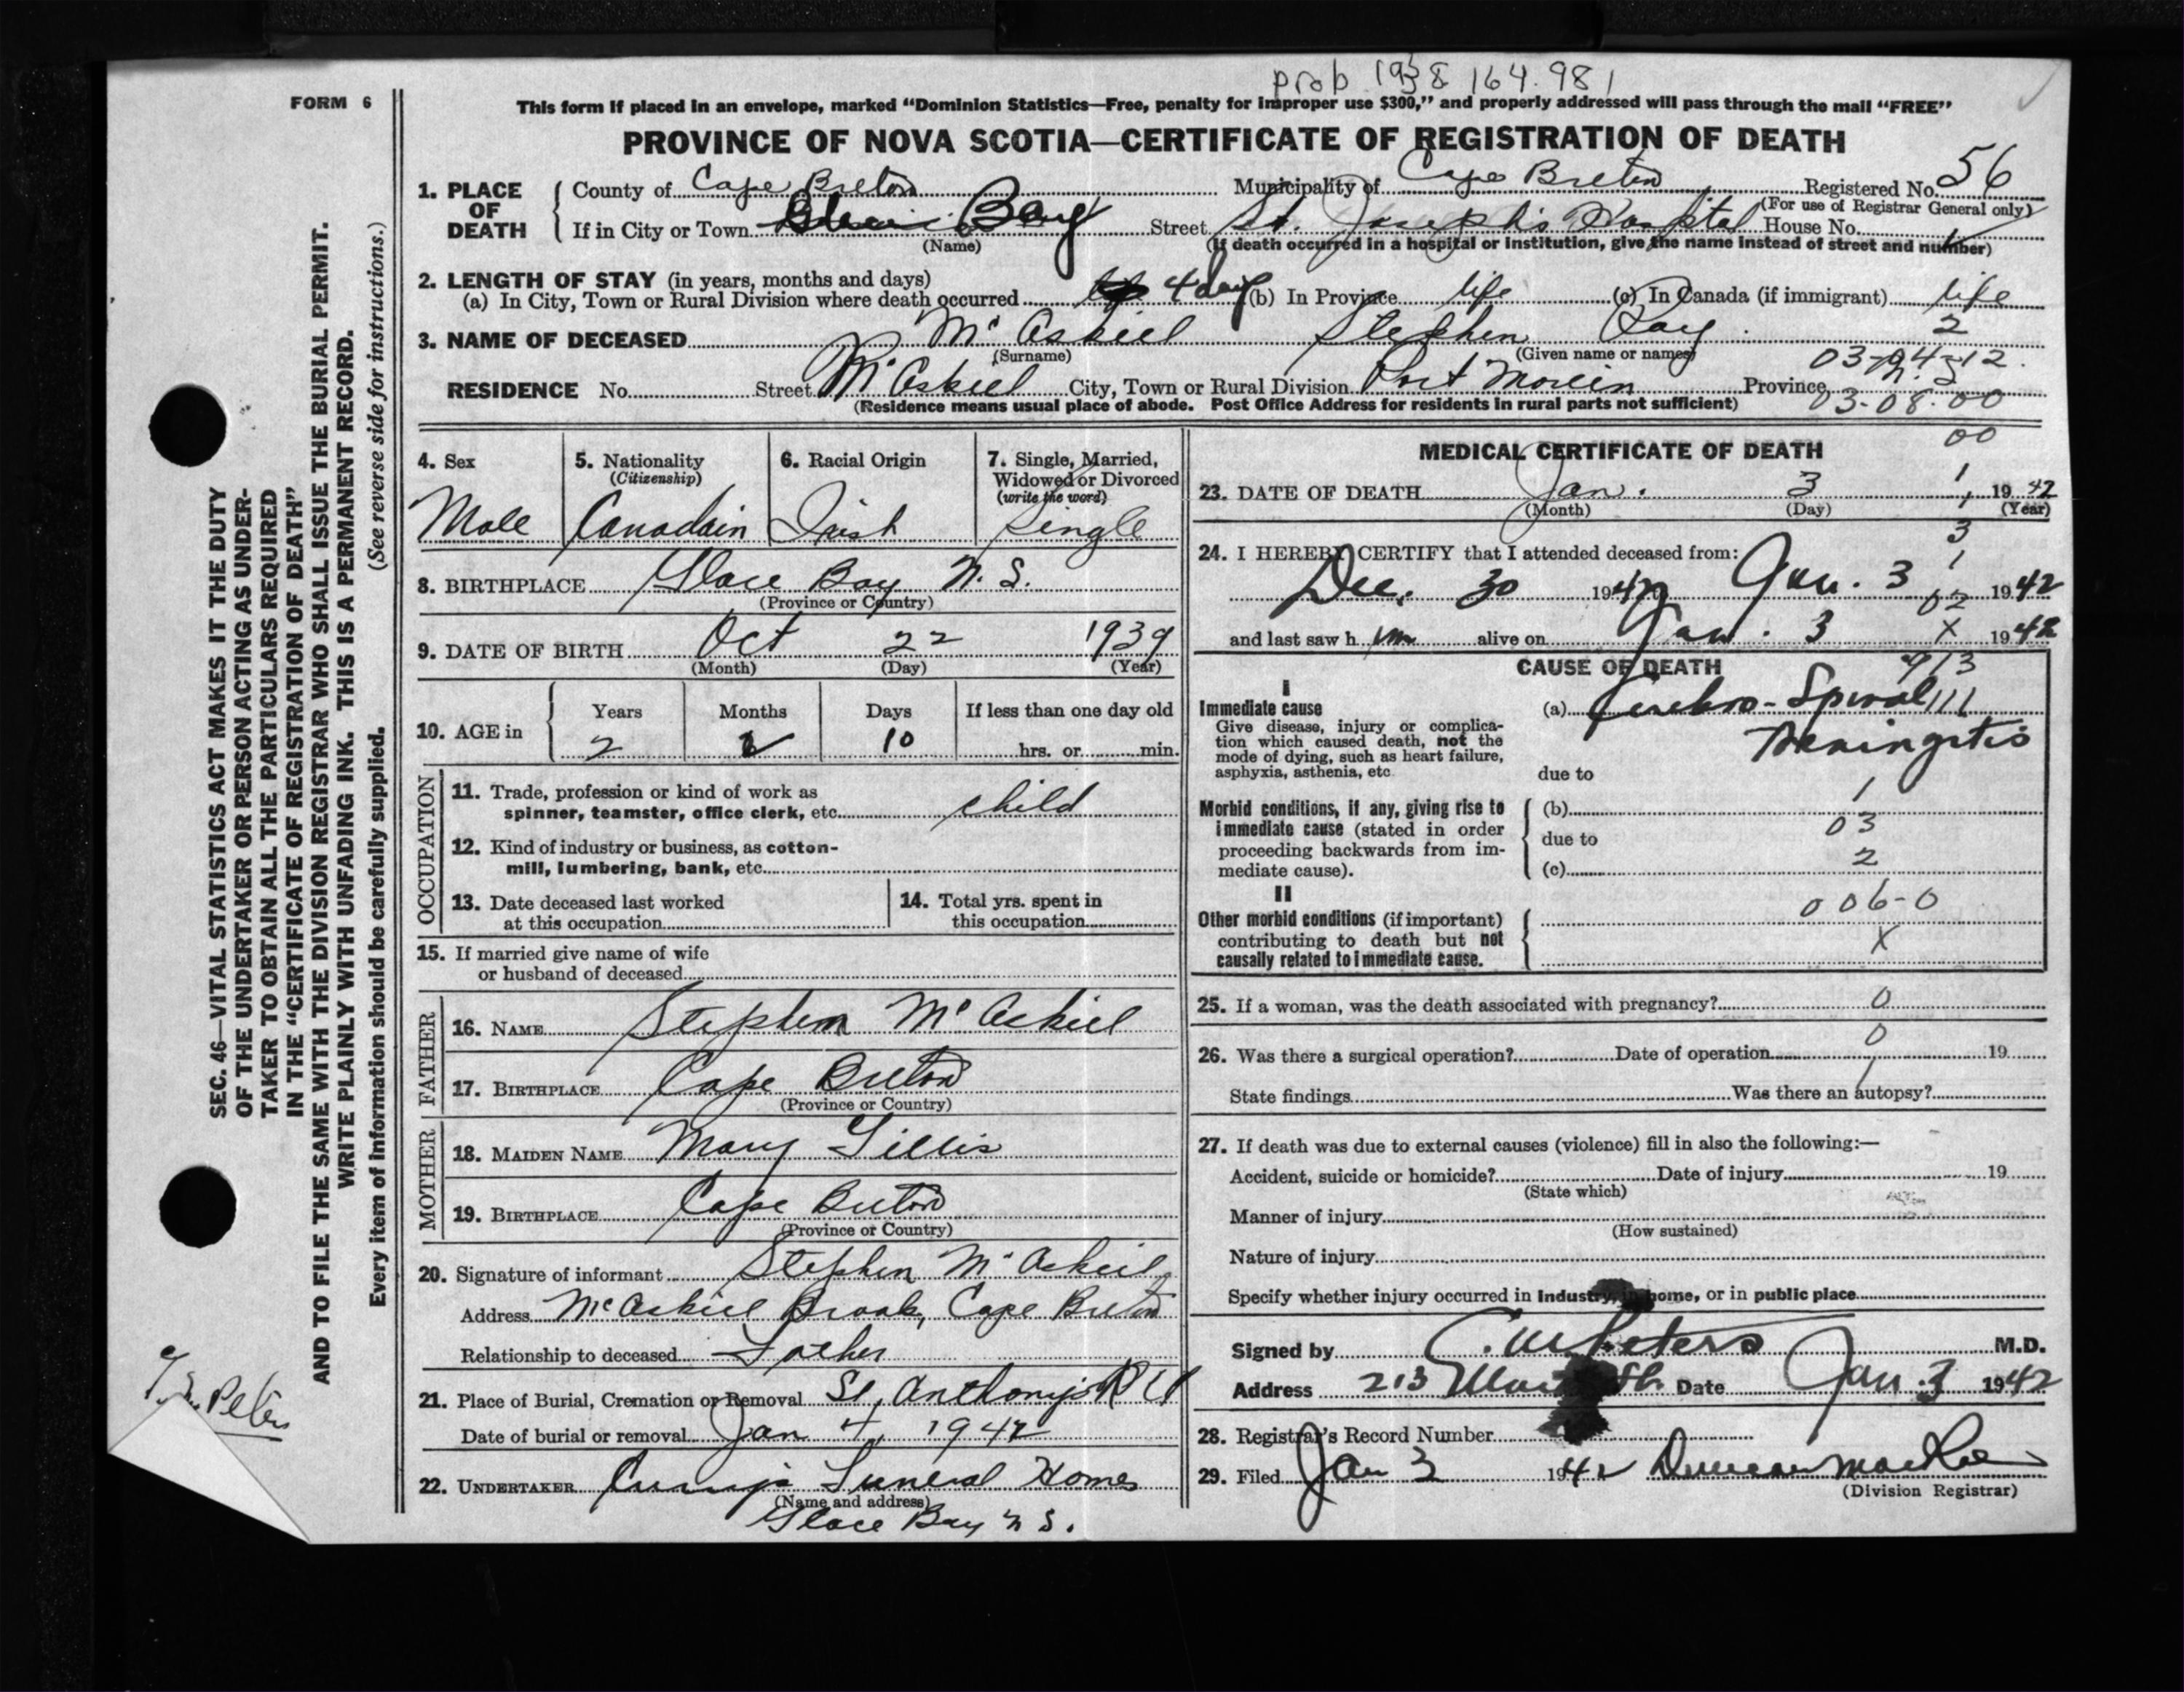 prob 1938 164.981
FORM 6
This form if placed in an envelope, marked “Dominion Statistics—Free, penalty for improper use $300,” and properly addressed will pass through the mail “FREE”
PROVINCE OF NOVA SCOTIA—CERTIFICATE OF REGISTRATION OF DEATH
1. PLACE OF DEATH
County of Cape Breton Municipality of Cape Breton Registered No. 56
(For use of Registrar General only)
If in City or Town Glace Bay Street St. Joseph's Hospital House No.
(Name) (If death occurred in a hospital or institution, give the name instead of street and number)
2. LENGTH OF STAY (in years, months and days)
(a) In City, Town or Rural Division where death occurred 4 days (b) In Province life (c) In Canada (if immigrant) life
3. NAME OF DECEASED Mc Askiel Stephen Ray 2
(Surname) (Given name or names) 03-04-12.
RESIDENCE No. Street McAskiel City, Town or Rural Division Port Morien Province N. S
(Residence means usual place of abode. Post Office Address for residents in rural parts not sufficient) 03-08-00
4. Sex 5. Nationality (Citizenship) 6. Racial Origin 7. Single, Married, Widowed or Divorced (write the word)
Male Canadain Irish Single
8. BIRTHPLACE Glace Bay N. S.
(Province or Country)
9. DATE OF BIRTH Oct 22 1939
(Month) (Day) (Year)
10. AGE in Years Months Days If less than one day old
2 2 10 hrs. or min.
OCCUPATION
11. Trade, profession or kind of work as
spinner, teamster, office clerk, etc. child
12. Kind of industry or business, as cotton-
mill, lumbering, bank, etc.
13. Date deceased last worked
at this occupation
14. Total yrs. spent in
this occupation
15. If married give name of wife
or husband of deceased
FATHER
16. NAME Stephen Mc Askiel
17. BIRTHPLACE Cape Breton
(Province or Country)
MOTHER
18. MAIDEN NAME Mary Gillis
19. BIRTHPLACE Cape Breton
(Province or Country)
20. Signature of informant Stephen Mc Askiel
Address McAskiel Brook, Cape Breton
Relationship to deceased Father
21. Place of Burial, Cremation or Removal St. Anthony's
Date of burial or removal Jan 4, 1942
22. UNDERTAKER Curry's Funeral Home
(Name and address)
Glace Bay N S.
MEDICAL CERTIFICATE OF DEATH 00
23. DATE OF DEATH Jan. 3 1 1942
(Month) (Day) (Year)
3
24. I HEREBY CERTIFY that I attended deceased from: 1
Dec. 30 194 Jan. 3 02 1942
and last saw h im alive on Jan. 3 X 1942
CAUSE OF DEATH 913
I
Immediate cause (a) Cerebro-Spinal 111
Give disease, injury or complica-
tion which caused death, not the
mode of dying, such as heart failure,
asphyxia, asthenia, etc.
Meningitis
due to
Morbid conditions, if any, giving rise to
immediate cause (stated in order
proceeding backwards from im-
mediate cause).
(b) 1
due to 03
(c) 2
II
Other morbid conditions (if important)
contributing to death but not
causally related to immediate cause.
006-0
X
25. If a woman, was the death associated with pregnancy? 0
26. Was there a surgical operation? Date of operation 0 19
State findings Was there an autopsy? 1
27. If death was due to external causes (violence) fill in also the following:—
Accident, suicide or homicide? Date of injury 19
(State which)
Manner of injury
(How sustained)
Nature of injury
Specify whether injury occurred in Industry, in home, or in public place
Signed by Peters M.D.
Address 213 St. Date Jan. 3 1942
28. Registrar's Record Number
29. Filed Jan 3 1942 Duncan MacRae
(Division Registrar)
SEC. 46—VITAL STATISTICS ACT MAKES IT THE DUTY
OF THE UNDERTAKER OR PERSON ACTING AS UNDER-
TAKER TO OBTAIN ALL THE PARTICULARS REQUIRED
IN THE “CERTIFICATE OF REGISTRATION OF DEATH”
AND TO FILE THE SAME WITH THE DIVISION REGISTRAR WHO SHALL ISSUE THE BURIAL PERMIT.
WRITE PLAINLY WITH UNFADING INK. THIS IS A PERMANENT RECORD.
Every item of information should be carefully supplied. (See reverse side for instructions.)
Peters